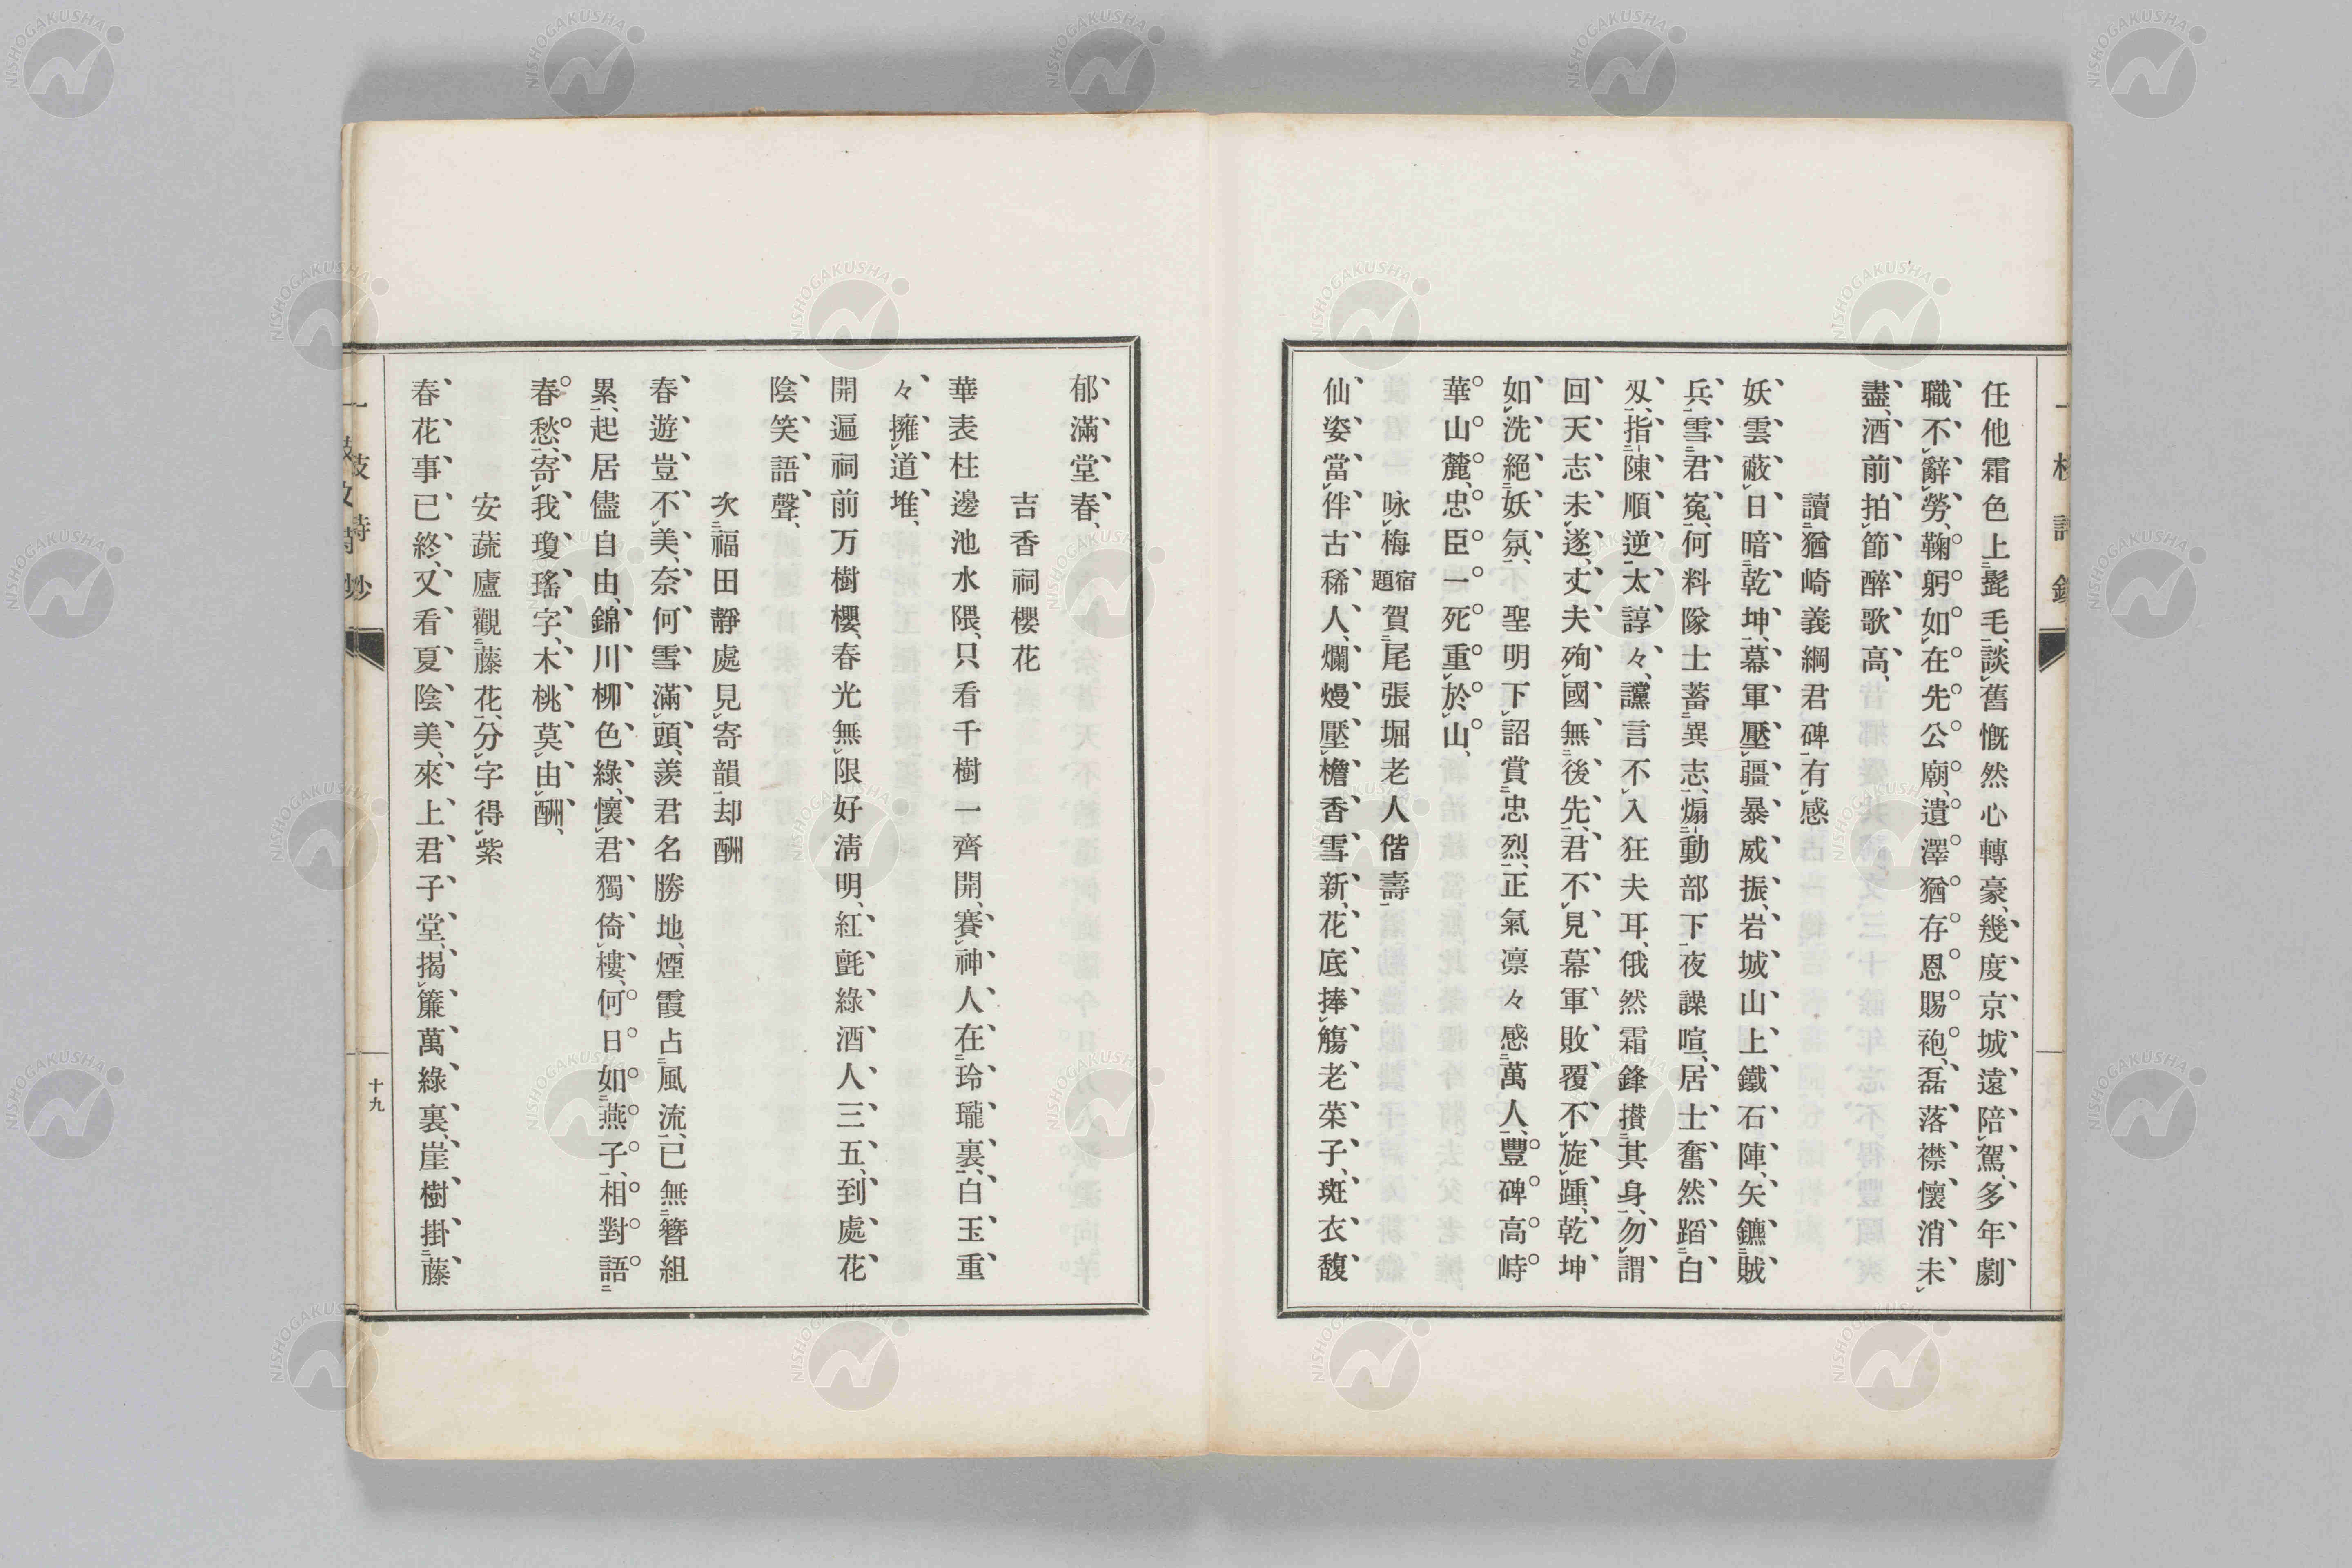 任他霜色上髭毛、談舊慨然心轉豪、幾度京城遠陪駕、多年劇
職不辭勞、鞠躬如在先公廟、遺澤猶存恩賜袍、磊落襟懷消未
盡、酒前拍節醉歌高、
讀猶崎義綱君碑有感
妖雲蔽日暗乾坤、幕軍壓疆暴威振、岩城山上鐵石陣、矢鑣賊
兵雪君冤、何料隊士蓄異志、煽動部下夜譟喧、居士奮然蹈白
刄、指陳順逆太諄々、讜言不入狂夫耳、俄然霜鋒攢其身、勿謂
回天志未遂、丈夫殉國無後先、君不見幕軍敗覆不旋踵、乾坤
如洗絕妖氛、聖明下詔賞忠烈、正氣凛々感萬人、豐碑高峙
華山麓、忠臣一死重於山、
咏梅宿題賀尾張堀老人偕壽
仙姿當伴古稀人、爛熳壓檐香雪新、花底捧觴老萊子、斑衣馥
郁滿堂春、
吉香祠櫻花
華表柱邊池水隈、只看千樹一齊開、賽神人在玲瓏裏、白玉重
々擁道堆、
開遍祠前万樹櫻、春光無限好淸明、紅氈綠酒人三五、到處花
陰笑語聲、
次福田靜處見寄韻却酬
春遊豈不美、奈何雪滿頭、羨君名勝地、煙霞占風流、已無簪組
累、起居儘自由、錦川柳色綠、懷君獨倚樓、何日如燕子、相對語
春愁、寄我瓊瑤字、木桃莫由酬、
安蔬廬觀藤花、分字得紫
春花事已終、又看夏陰美、來上君子堂、揭簾萬綠裏、崖樹掛藤
十九